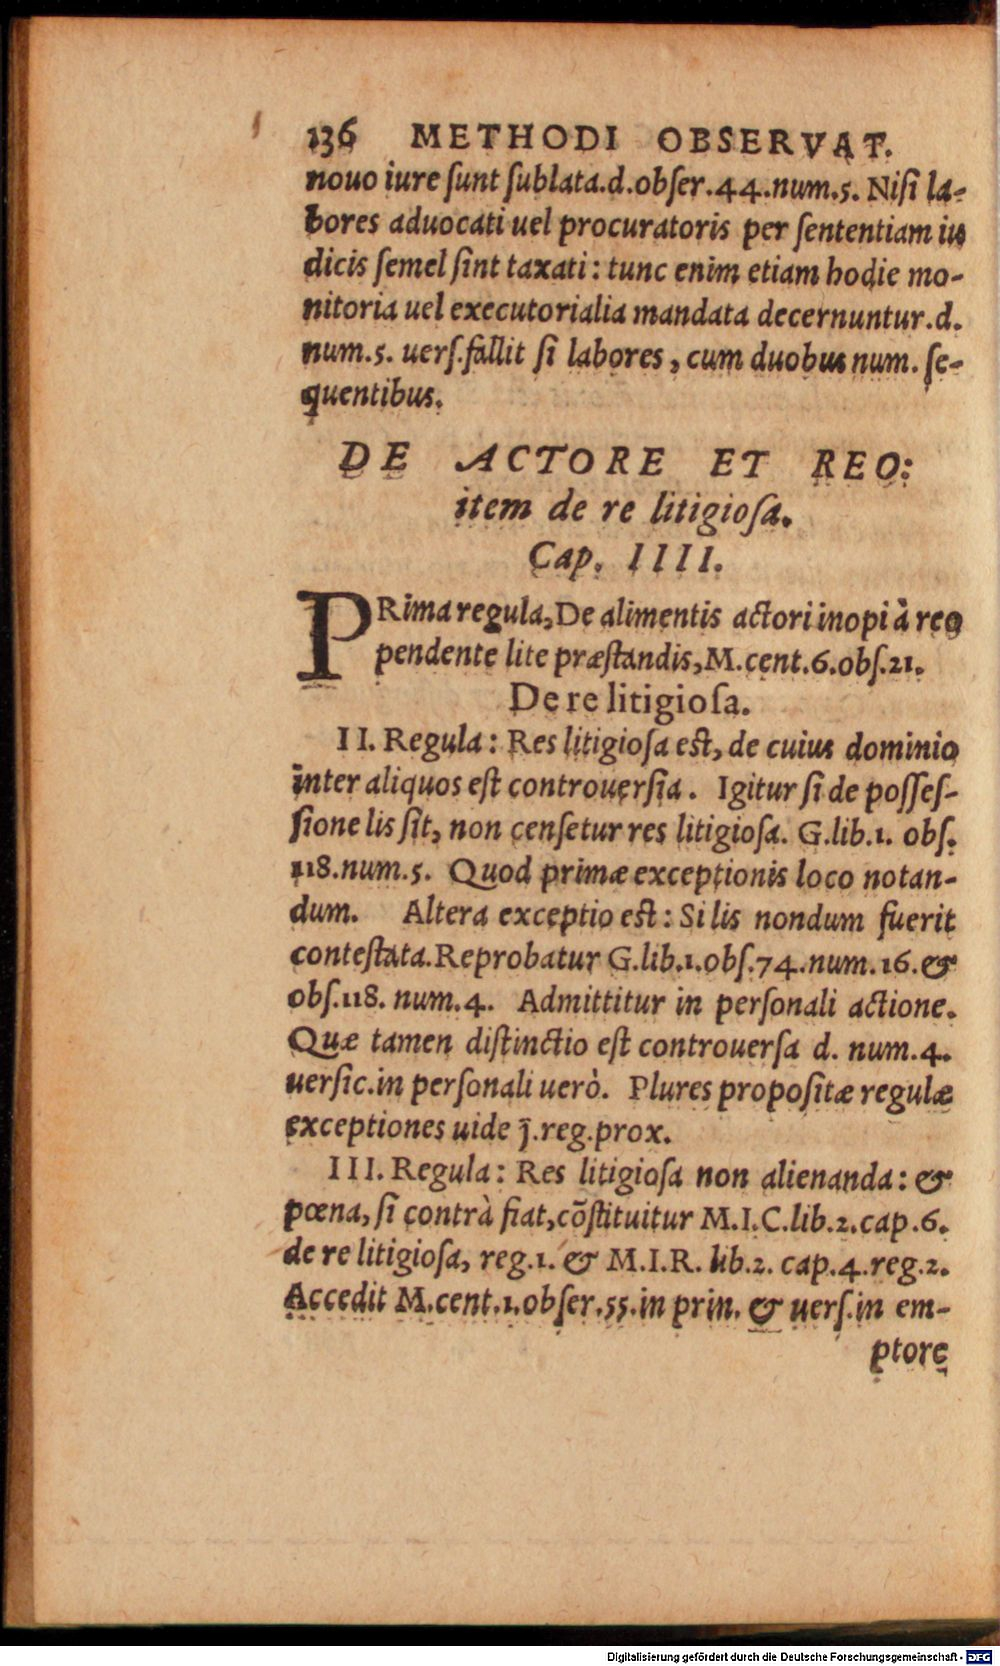 136 METHODI OBSERVAT.
nouo iure ſunt ſublata.d.obſer.44.num.5. Niſi la-
bores aduocati uel procuratoris per ſententiam iu
dicis ſemel ſint taxati: tunc enim etiam hodie mo-
nitoria uel executorialia mandata decernuntur.d.
num.5. uerſ.fallit ſi labores, cum duobus num. ſe-
quentibus.
DE ACTORE ET REO:
item de re litigioſa.
Cap. IIII.
PRima regula, De alimentis actori inopi à reo
pendente lite præſtandis, M.cent.6.obſ.21.
De re litigioſa.
II. Regula: Res litigioſa est, de cuius dominio
inter aliquos eſt controuerſia. Igitur ſi de poſſeſ-
ſione lis ſit, non cenſetur res litigioſa. G.lib.1. obſ.
118.num.5. Quod primæ exceptionis loco notan-
dum. Altera exceptio est: Si lis nondum fuerit
conteſtata. Reprobatur G.lib.1.obſ.74.num.16. &
obſ.118. num.4. Admittitur in perſonali actione.
Quæ tamen diſtinctio eſt controuerſa d. num.4.
uerſic.in perſonali uerò. Plures propoſitæ regulæ
exceptiones uide j̄.reg.prox.
III. Regula: Res litigioſa non alienanda: &
pœna, ſi contrà fiat, cõſtituitur M.I.C.lib.2.cap.6.
de re litigioſa, reg.1. & M.I.R. lib.2. cap.4.reg.2.
Accedit M.cent.1.obſer.55.in prin. & uerſ.in em-
ptore
Digitalisierung gefördert durch die Deutsche Forschungsgemeinschaft - DFG